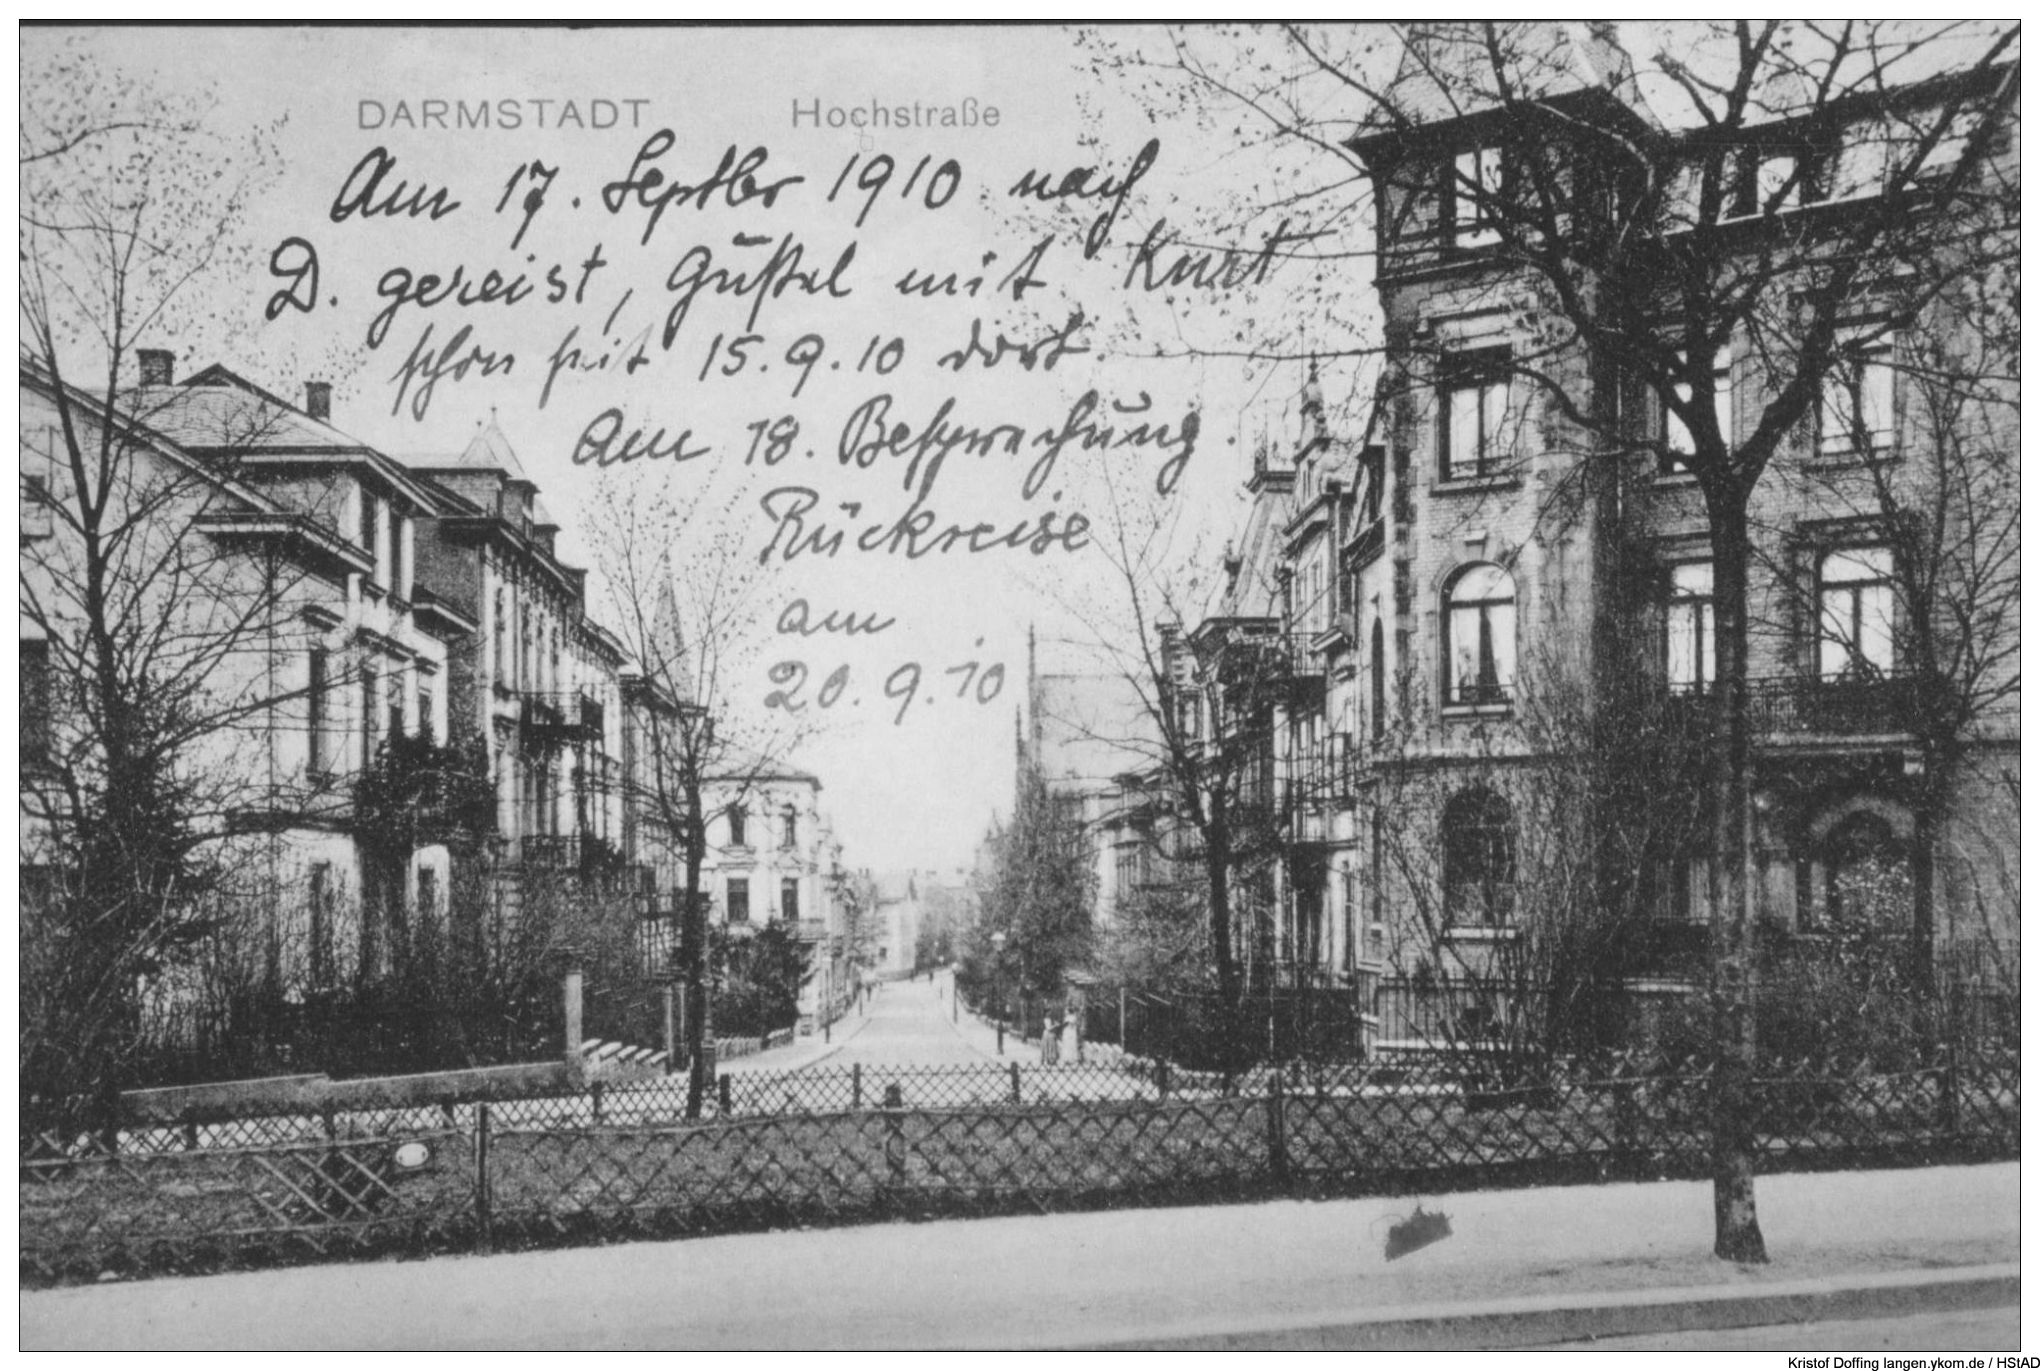 DARMSTADT Hochstraße
Am 17. Septbr 1910 nach
D. gereist, Gustel mit Kurt
schon seit 15.9.10 dort.
Am 18. Besprechung.
Rückreise
am
20.9.10
Kristof Doffing langen.ykom.de / HStAD